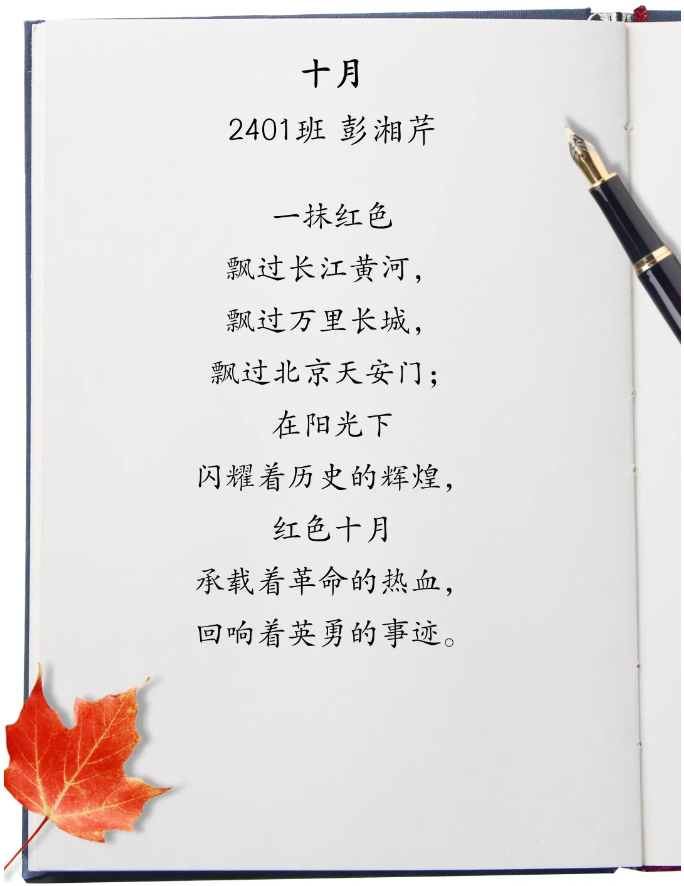 十月
2401班 彭湘芹
一抹红色
飘过长江黄河，
飘过万里长城，
飘过北京天安门；
在阳光下
闪耀着历史的辉煌，
红色十月
承载着革命的热血，
回响着英勇的事迹。